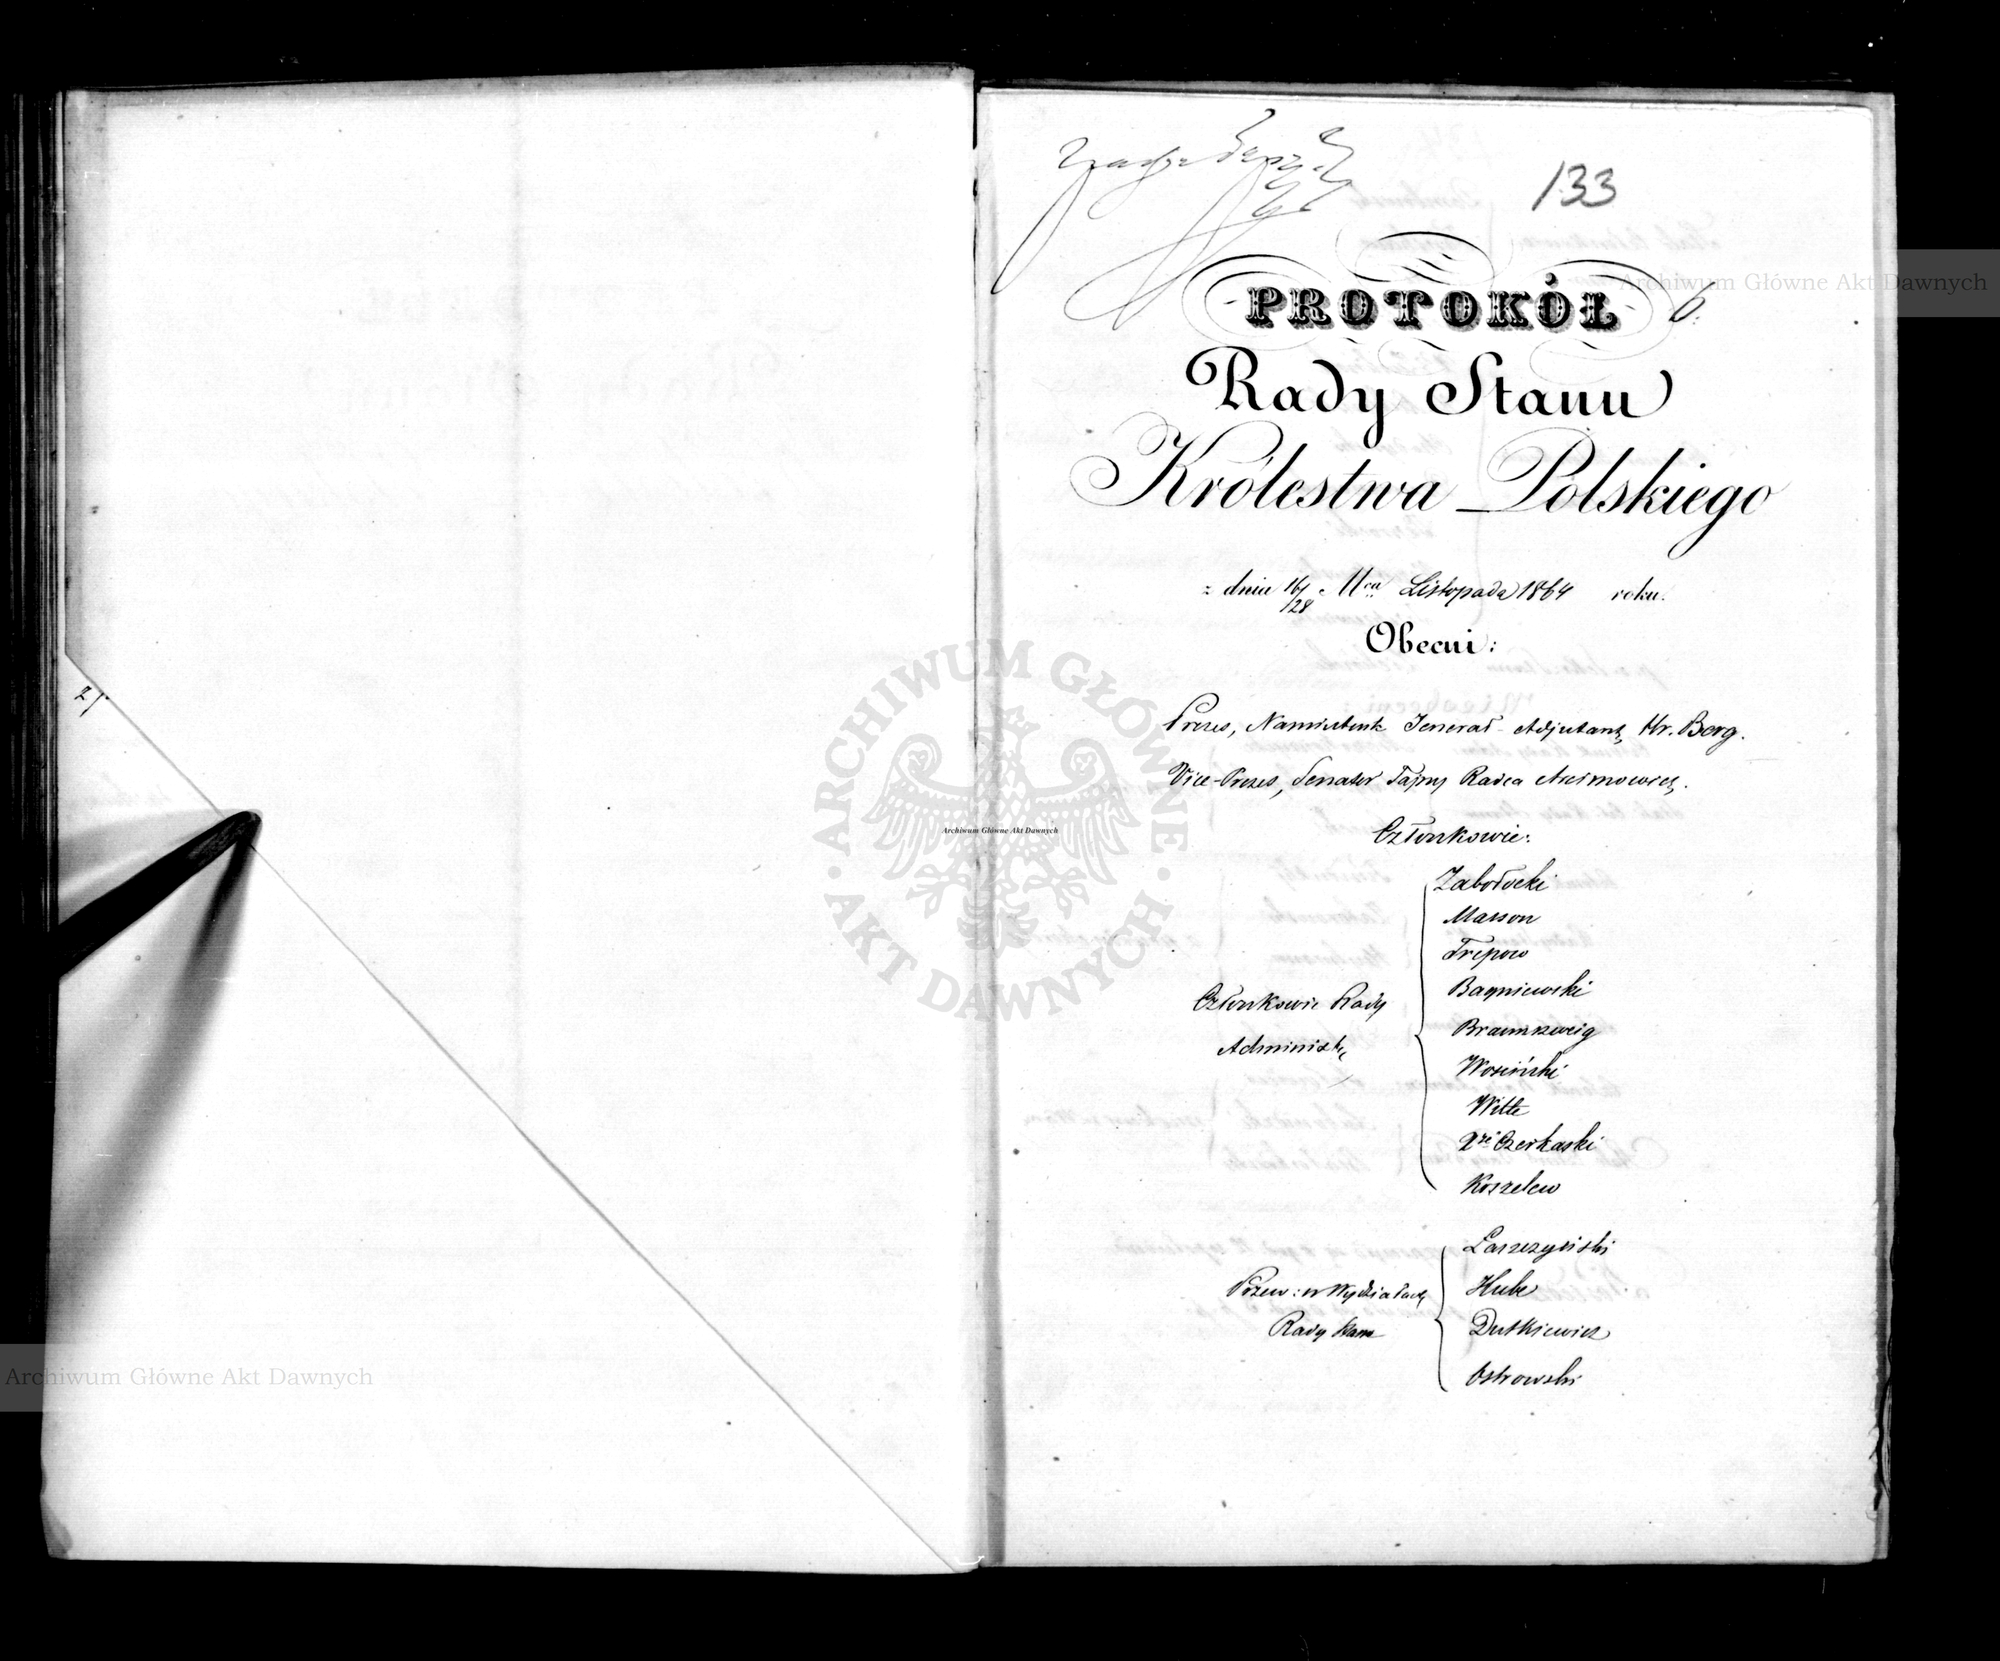 133
PROTOKÓŁ 6.
Rady Stanu
Królestwa Polskiego
z dnia 16/28 Mca Listopada 1864 roku.
Obecni:
Prezes, Namiestnik Jenerał-Adjutant, Hr. Berg.
Vice-Prezes, Senator Tajny Radca Arcimowicz.
Członkowie:
Członkowie Rady
Administr
Zabołocki
Masson
Trepow
Bagniewski
Braunszweig
Wosiński
Witte
Xże Czerkaski
Koszelew
Przew: w Wydziałach
Rady Stanu
Łaszczyński
Hube
Dutkiewicz
Ostrowski
ARCHIWUM GŁÓWNE AKT DAWNYCH
Archiwum Główne Akt Dawnych
Archiwum Główne Akt Dawnych
Archiwum Główne Akt Dawnych